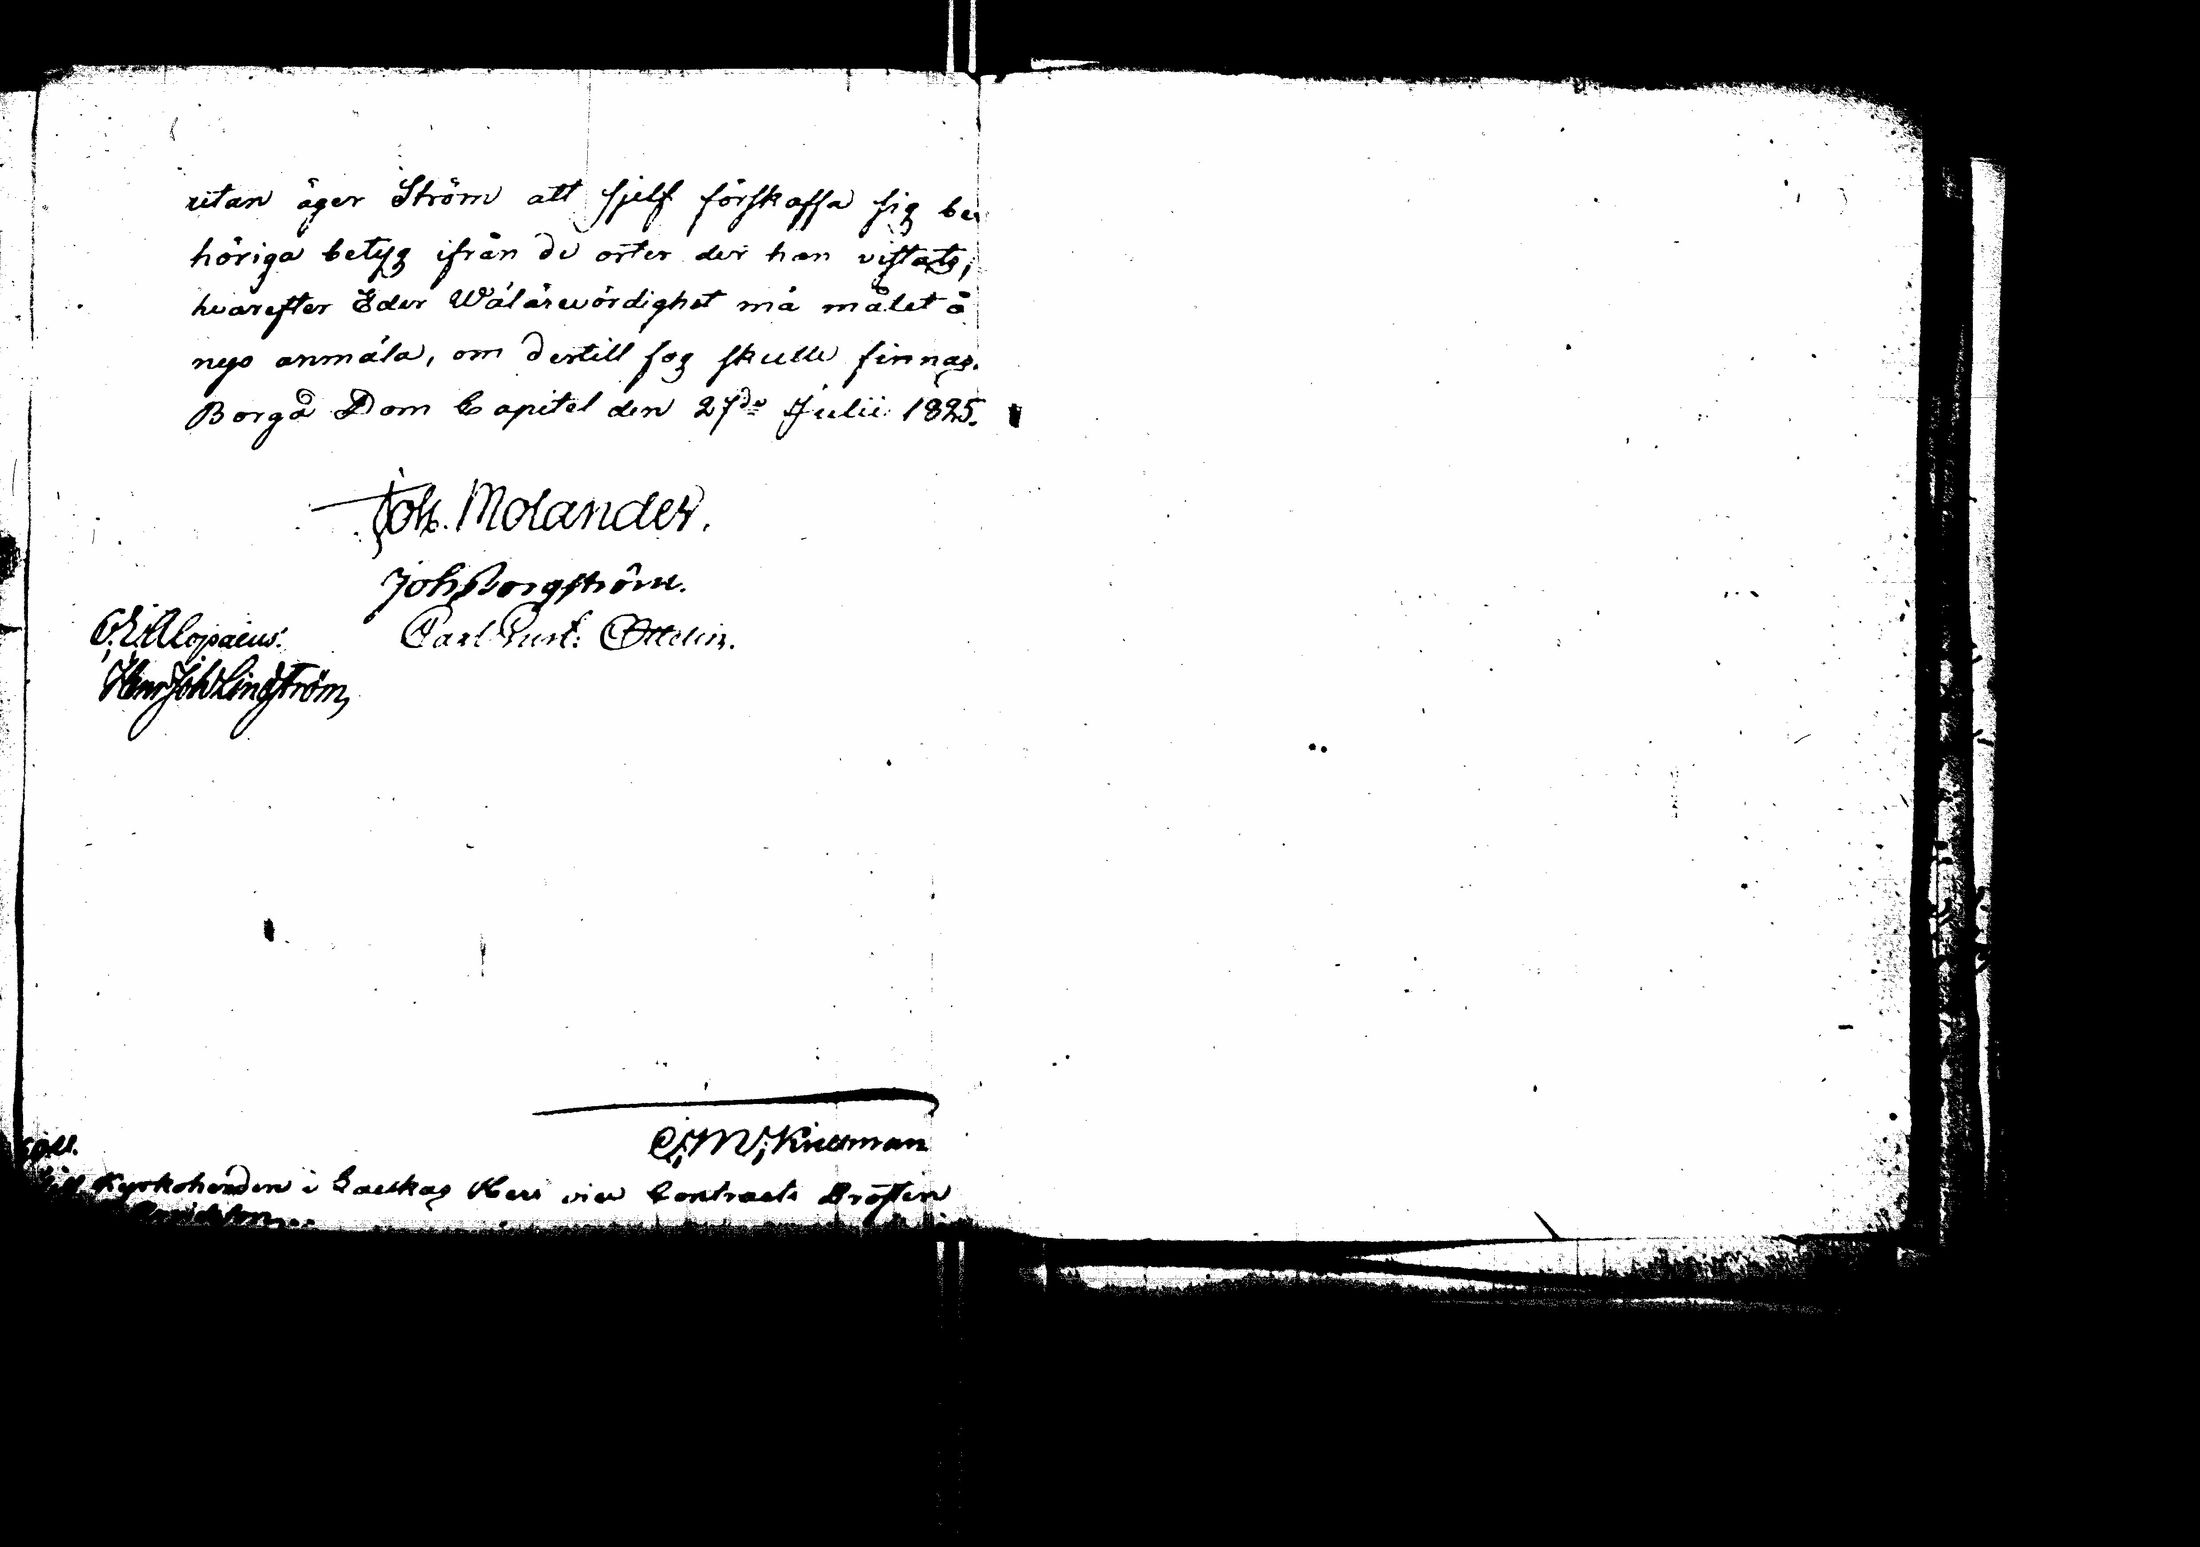 utan äger Ström att sjelf förskaffa sig be
höriga betyg ifrån de orter der han vistats,
hvarefter Eder Wälärewördighet må målet å
nyo anmäla, om dertill fog skulle finnas.
Borgå Dom Capitel den 27de Julii 1825.
Joh. Molander.
Joh Borgström.
Carl Gust: Ottelin.
Alopæus.
Henr Joh Lindström,
Kyrkoherden i vice Contracts Prosten